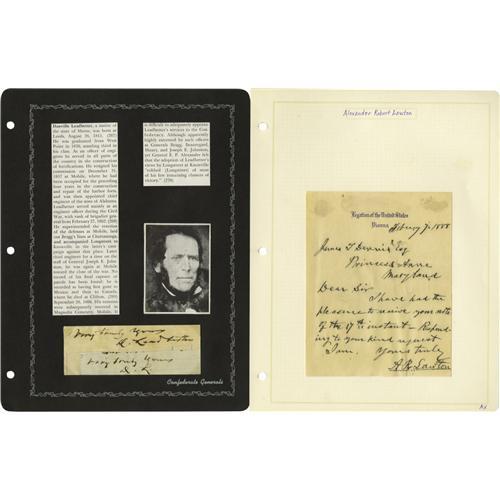 Danville Leadbetter, a native
of the state of Maine, was born at
Leeds, August 26, 1811. (207)
He was graduated from West
Point in 1836, standing third in
his class. As an officer of engi-
neers he served in all parts of
the country in the construction
of fortifications. He resigned his
commission on December 31,
1857 at Mobile, where he had
been occupied for the preceding
four years in the construction
and repair of the harbor forts,
and was then appointed chief
engineer of the state of Alabama.
Leadbetter served mainly as an
engineer officer during the Civil
War, with rank of brigadier gen-
eral from February 27, 1862. (208)
He superintended the erection
of the defenses at Mobile, laid
out Bragg's lines at Chattanooga,
and accompanied Longstreet to
Knoxville in the latter's cam-
paign against that place. Later
chief engineer for a time on the
staff of General Joseph E. John-
ston, he was again at Mobile
toward the close of the war. No
record of his final capture or
parole has been found; he is
recorded as having first gone to
Mexico and then to Canada,
where he died at Clifton, (209)
September 26, 1866. His remains
were subsequently interred in
Magnolia Cemetery, Mobile. It
is difficult to adequately appraise
Leadbetter's services to the Con-
federacy. Although apparently
highly esteemed by such officers
as Generals Bragg, Beauregard,
Maury, and Joseph E. Johnston,
yet General E. P. Alexander felt
that the adoption of Leadbetter's
views by Longstreet at Knoxville
"robbed [Longstreet] of most
of his few remaining chances of
victory." (210)
Very truly Yours
D. Leadbetter
Very truly Yours
D. L
Confederate Generals
Alexander Robert Lawton
Legation of the United States
Vienna
1888
James F Dennis Esq
Princess Anne
Maryland
Dear Sir
I have had the
pleasure to receive your note
of the 17th instant - Respond-
ing to your kind request
I am, Yours truly
A. R. Lawton